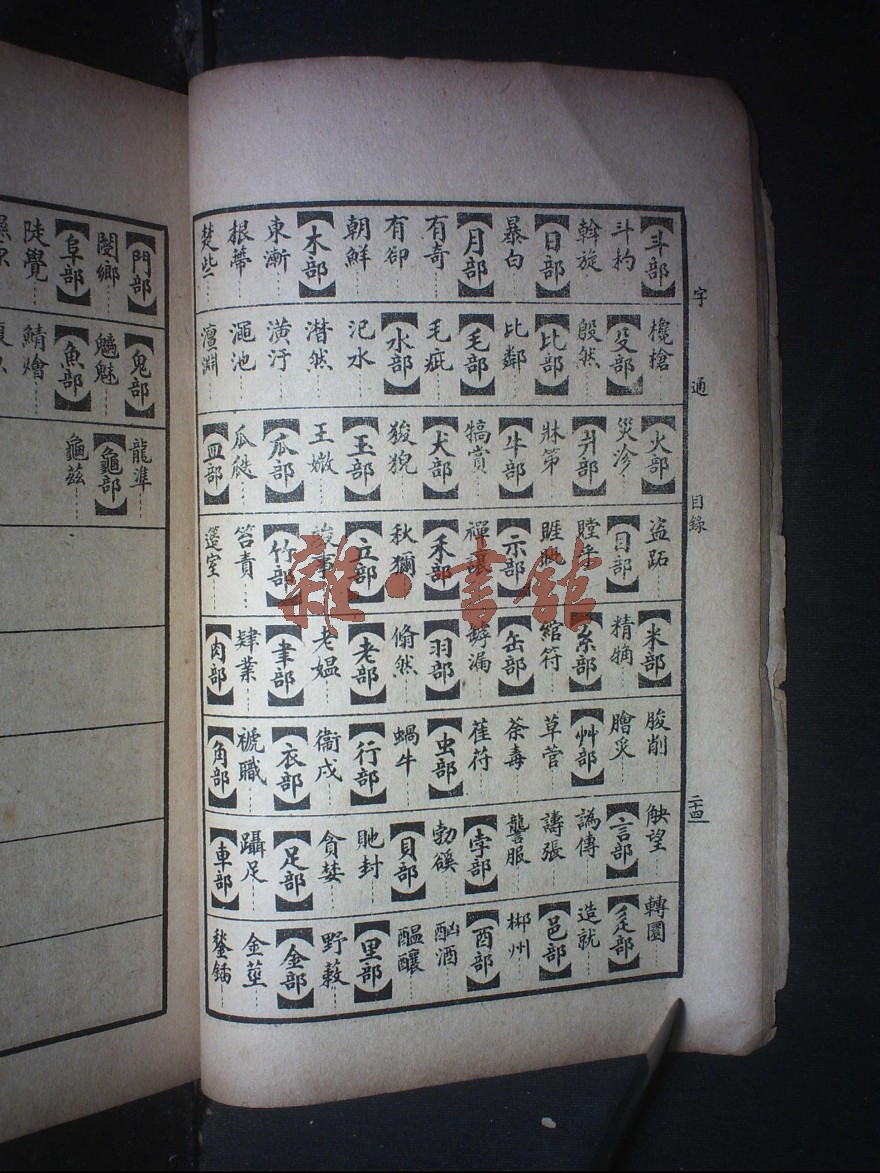 字通
目錄
二十四
斗部
斗杓
斡旋
日部
暴白
月部
有奇
有卻
朝鮮
木部
東漸
根蒂
楚些
欃槍
殳部
殷然
比部
比鄰
毛部
毛疵
水部
汜水
潸然
潢汙
澠池
澶淵
火部
災沴
爿部
牀笫
牛部
犒賞
犬部
狻猊
玉部
王嫩
瓜部
瓜瓞
皿部
盜跖
目部
瞠乎
睚眦
示部
禪讓
禾部
秋獮
立部
竣事
竹部
笞責
簉室
米部
精觕
糸部
綰符
缶部
罅漏
羽部
翛然
老部
老媼
聿部
肄業
肉部
朘削
膾炙
艸部
草菅
荼毒
萑苻
虫部
蝸牛
行部
衞戍
衣部
褫職
角部
觖望
言部
譌傳
譸張
讋服
孛部
勃谿
貝部
貤封
貪婪
足部
躡足
車部
轉圜
辵部
造就
邑部
郴州
酉部
酗酒
醞釀
里部
野蔌
金部
金莖
鍪鍤
門部
閿鄉
阜部
陡覺
鬼部
魑魅
魚部
鯖燴
龍準
龜部
龜茲
雜·書館